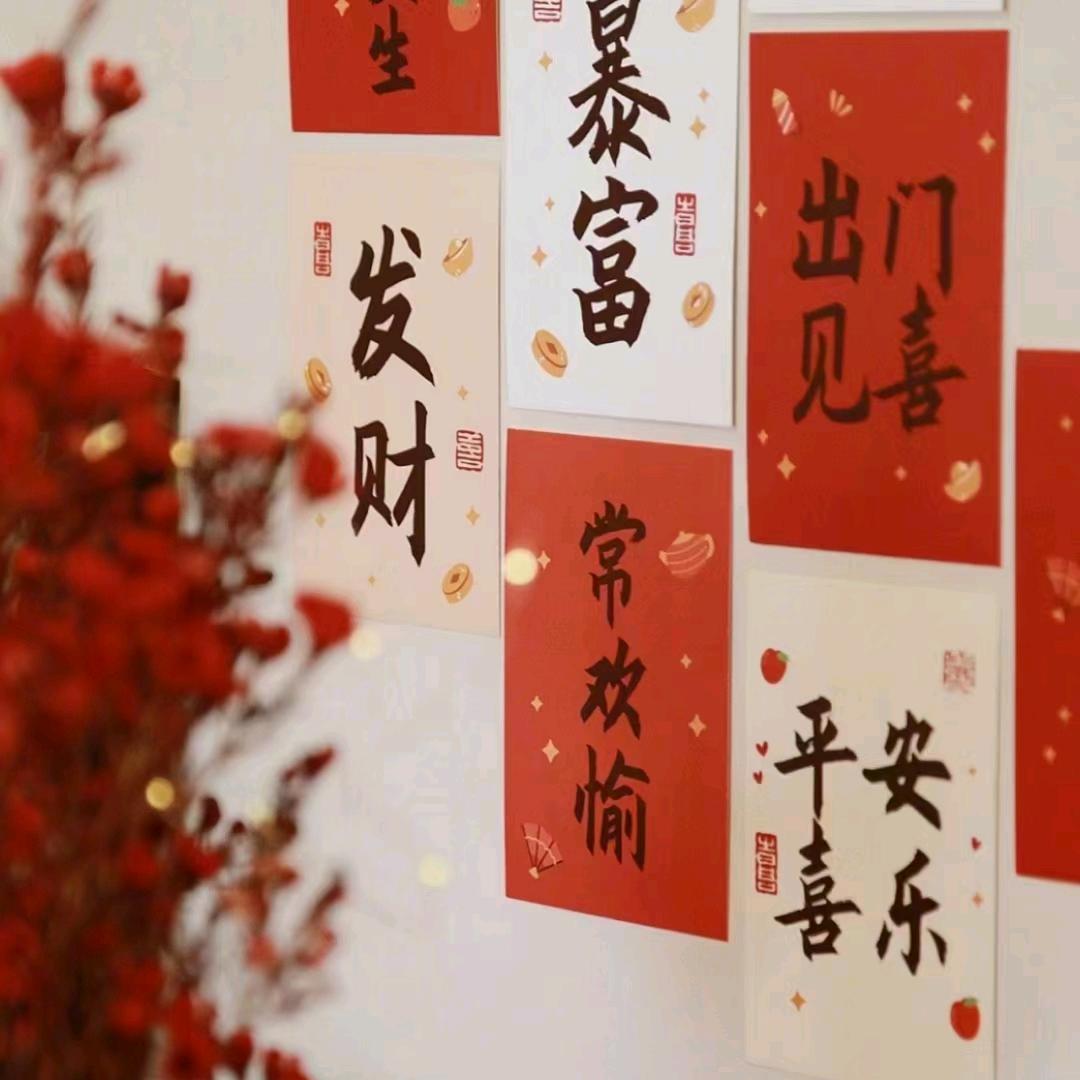 生
暴富
出门
见喜
发财
常欢愉
平安
喜乐